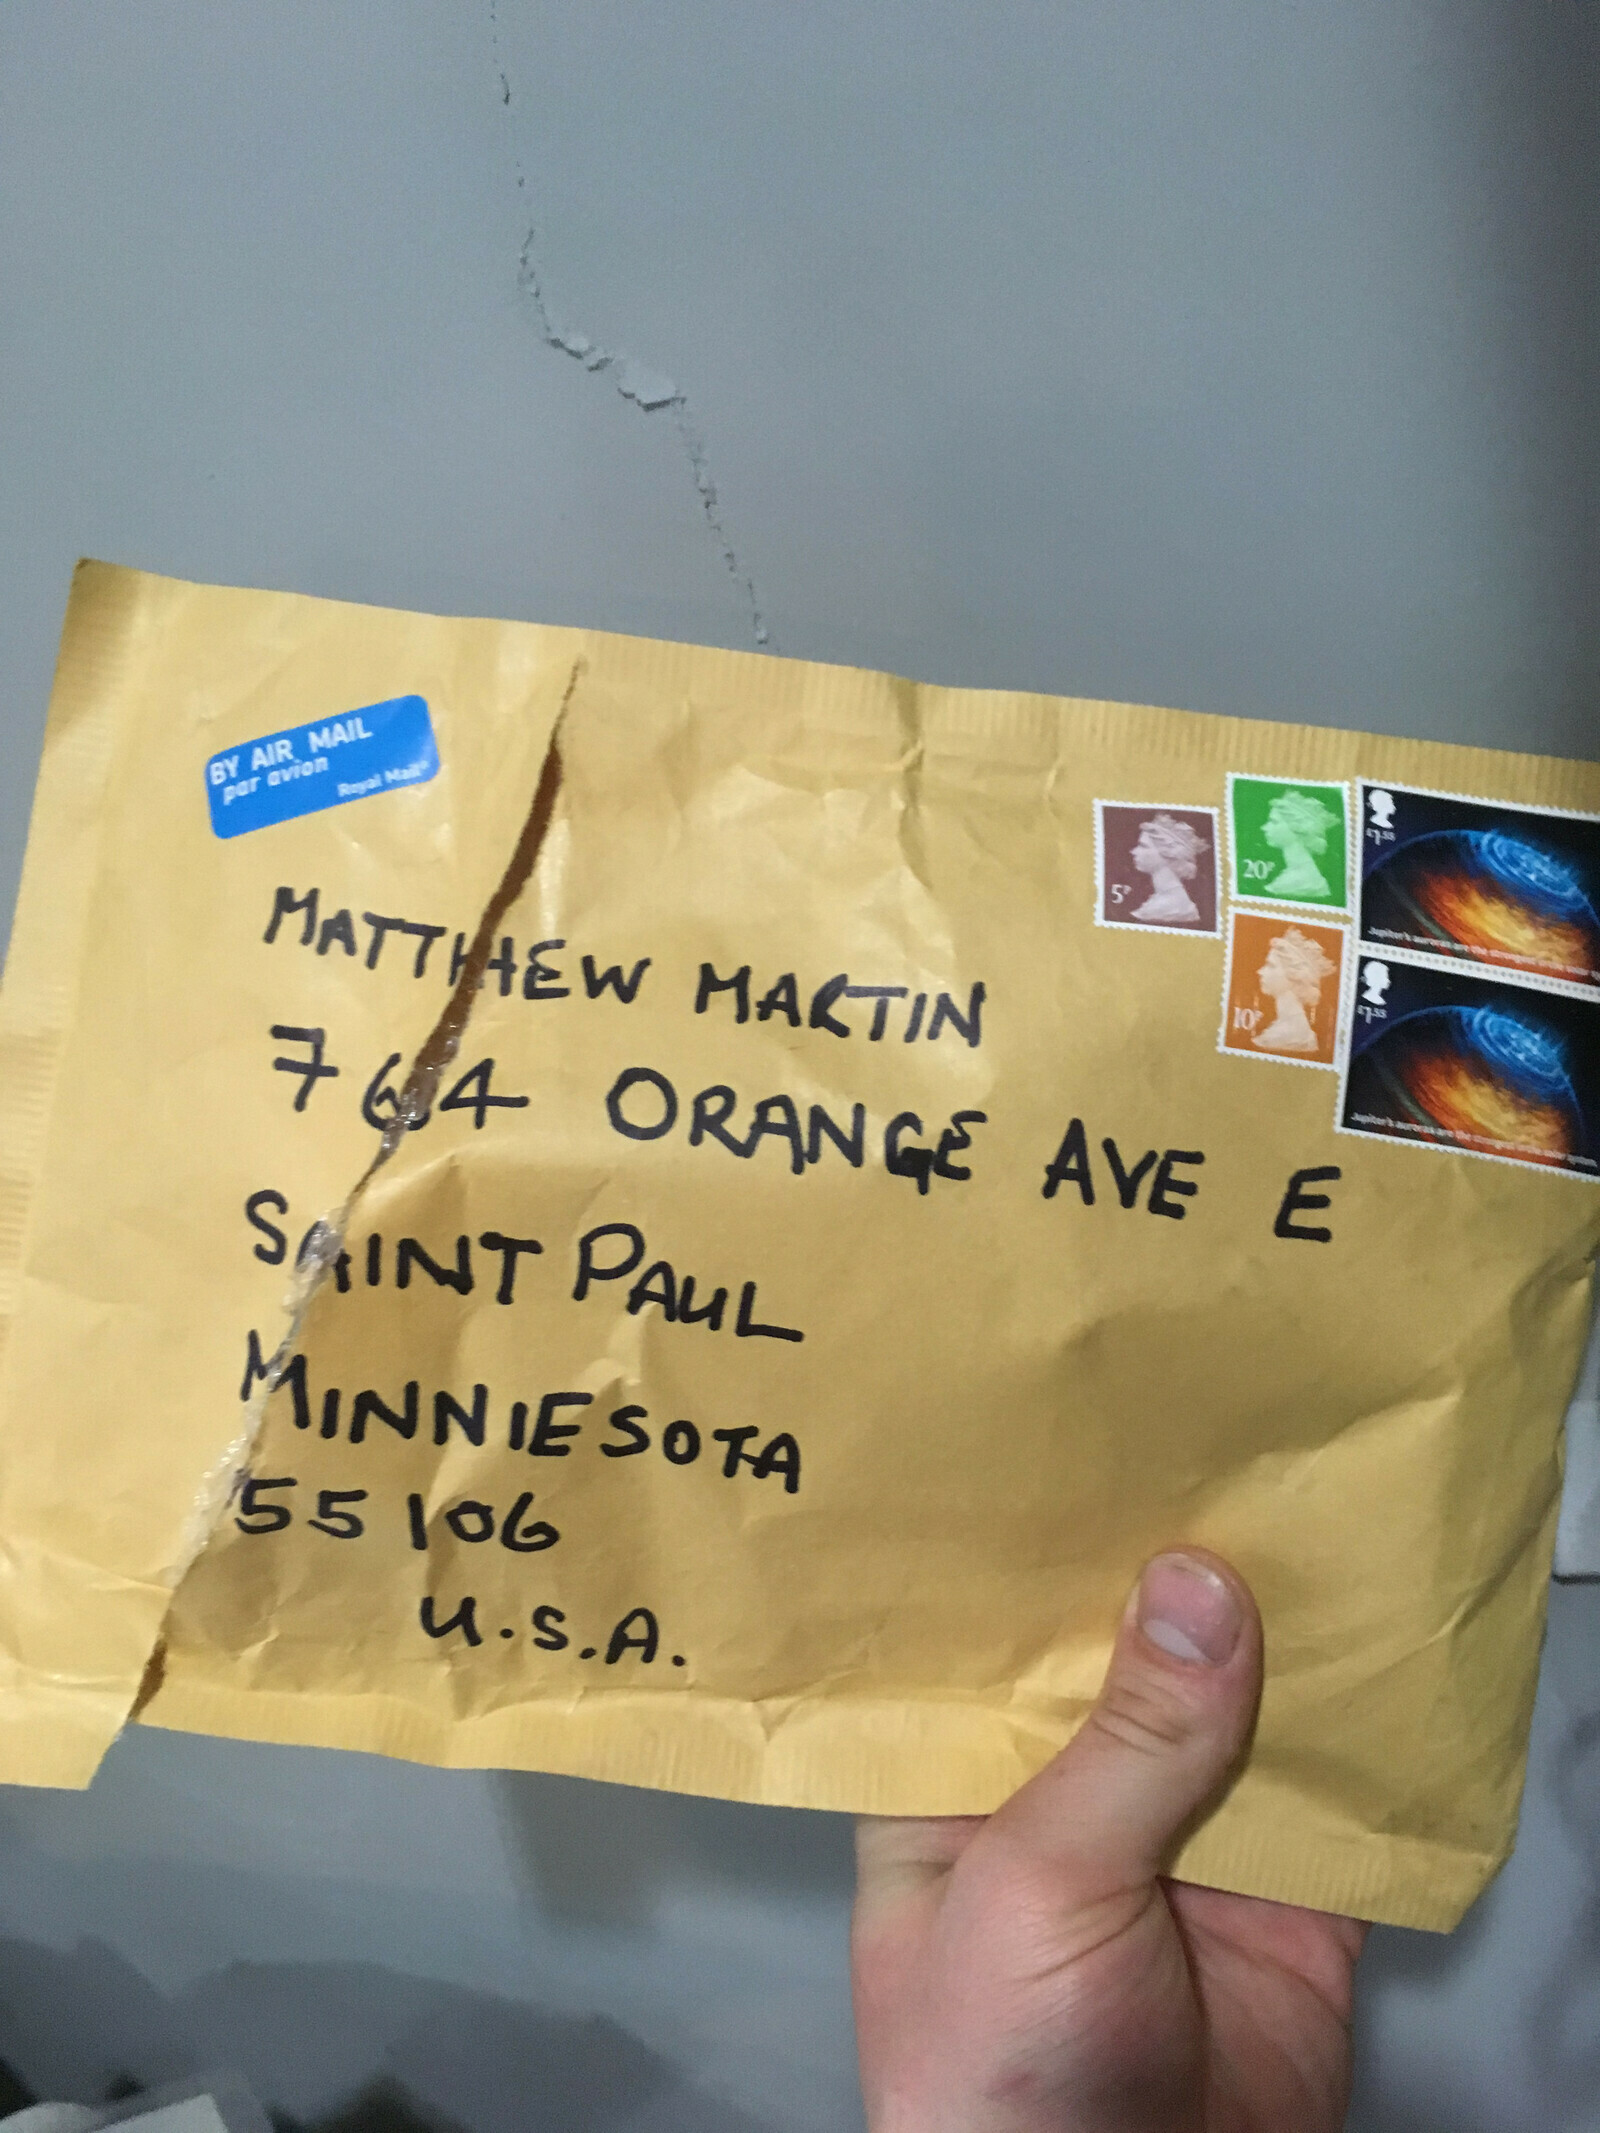 BY AIR MAIL
par avion
Royal Mail®
MATTHEW MARTIN
764 ORANGE AVE E
SAINT PAUL
MINNIESOTA
55106
U.S.A.
5P
20P
10P
£1.55
Jupiter's auroras are the strongest in the solar
£1.55
Jupiter's auroras are the strongest in the solar system.